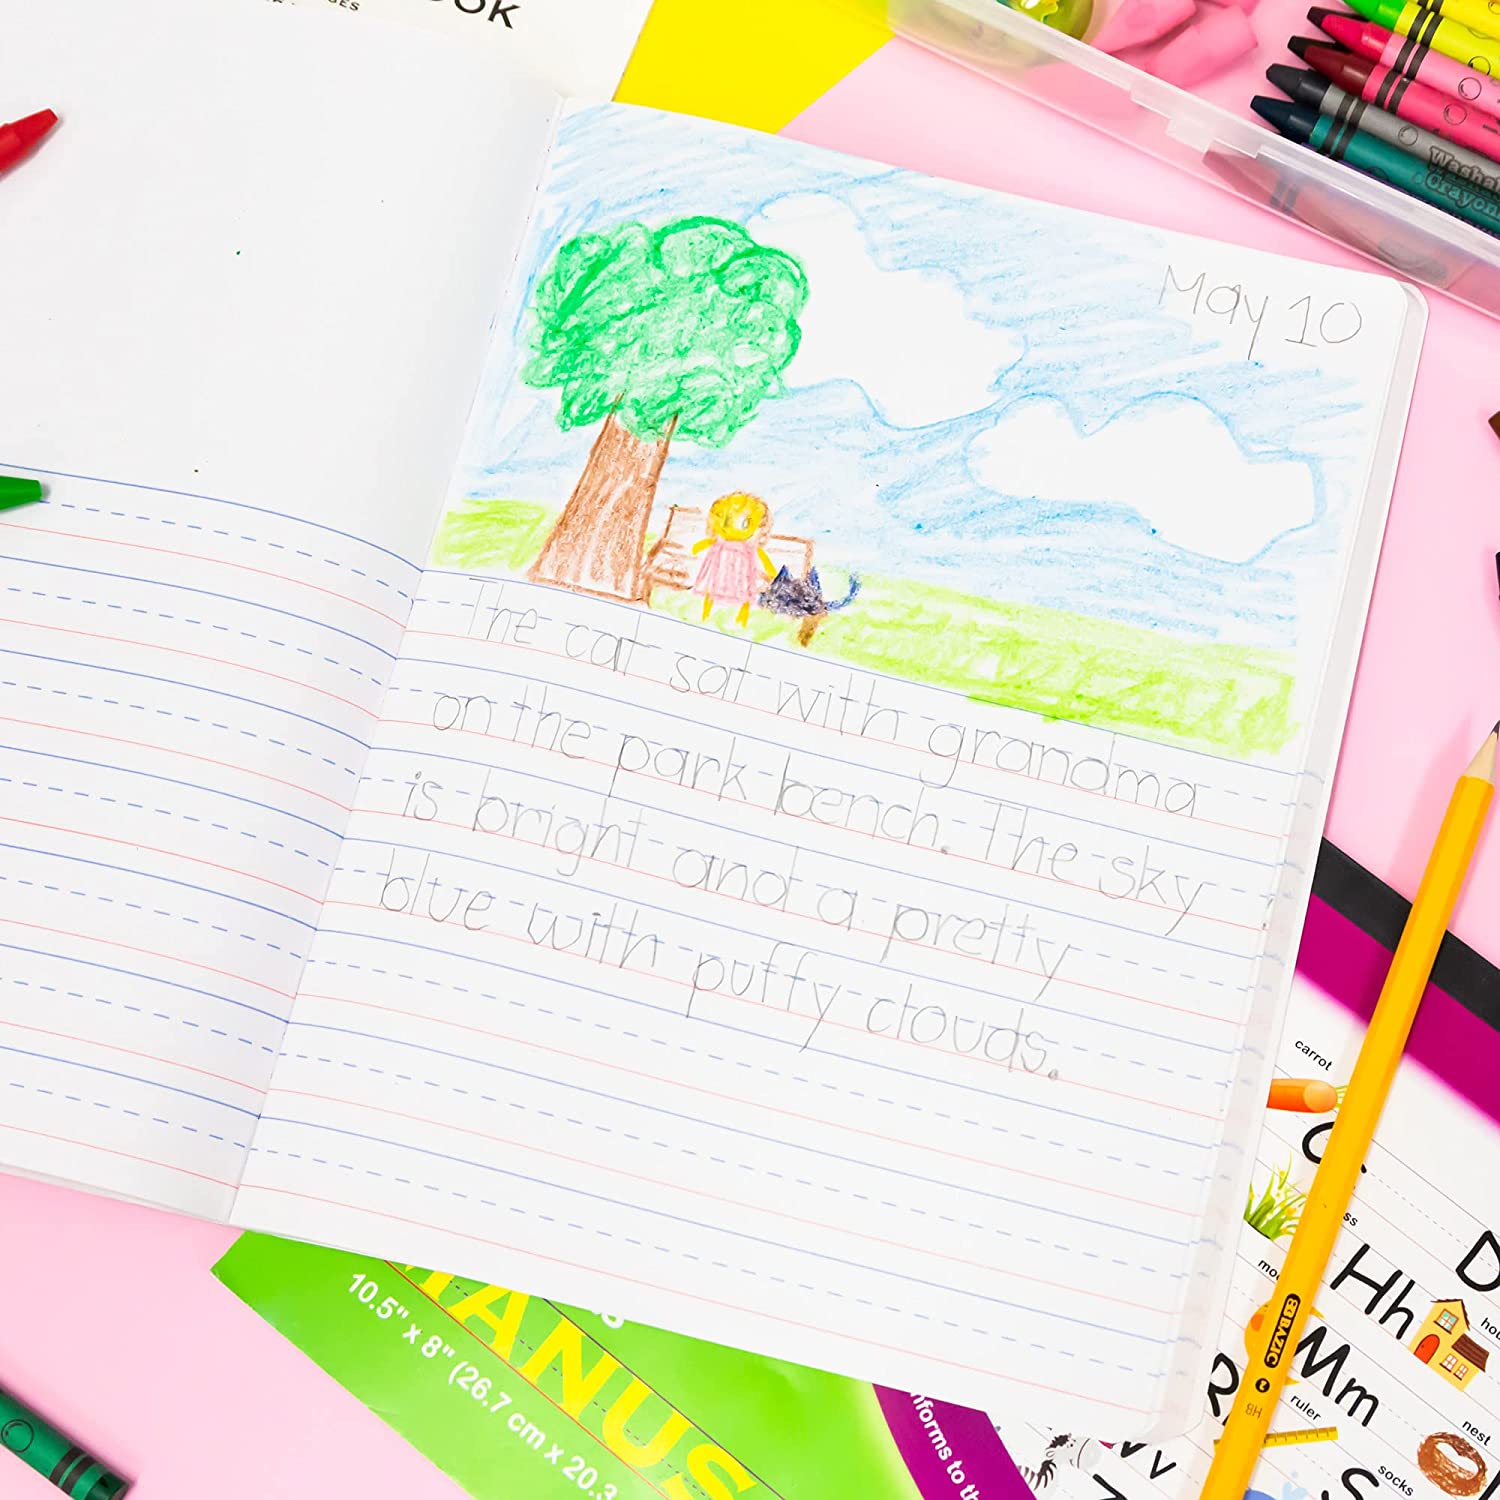 May 10
The cat sat with grandma
on the park bench. The sky
is bright and a pretty
blue with puffy clouds.
OOK
GES
Crayon
carrot
Hh
Mm
ruler
nest
socks
BAZIC
2 HB
MANUS
10.5" x 8" (26.7 cm x 20.3
nforms to th